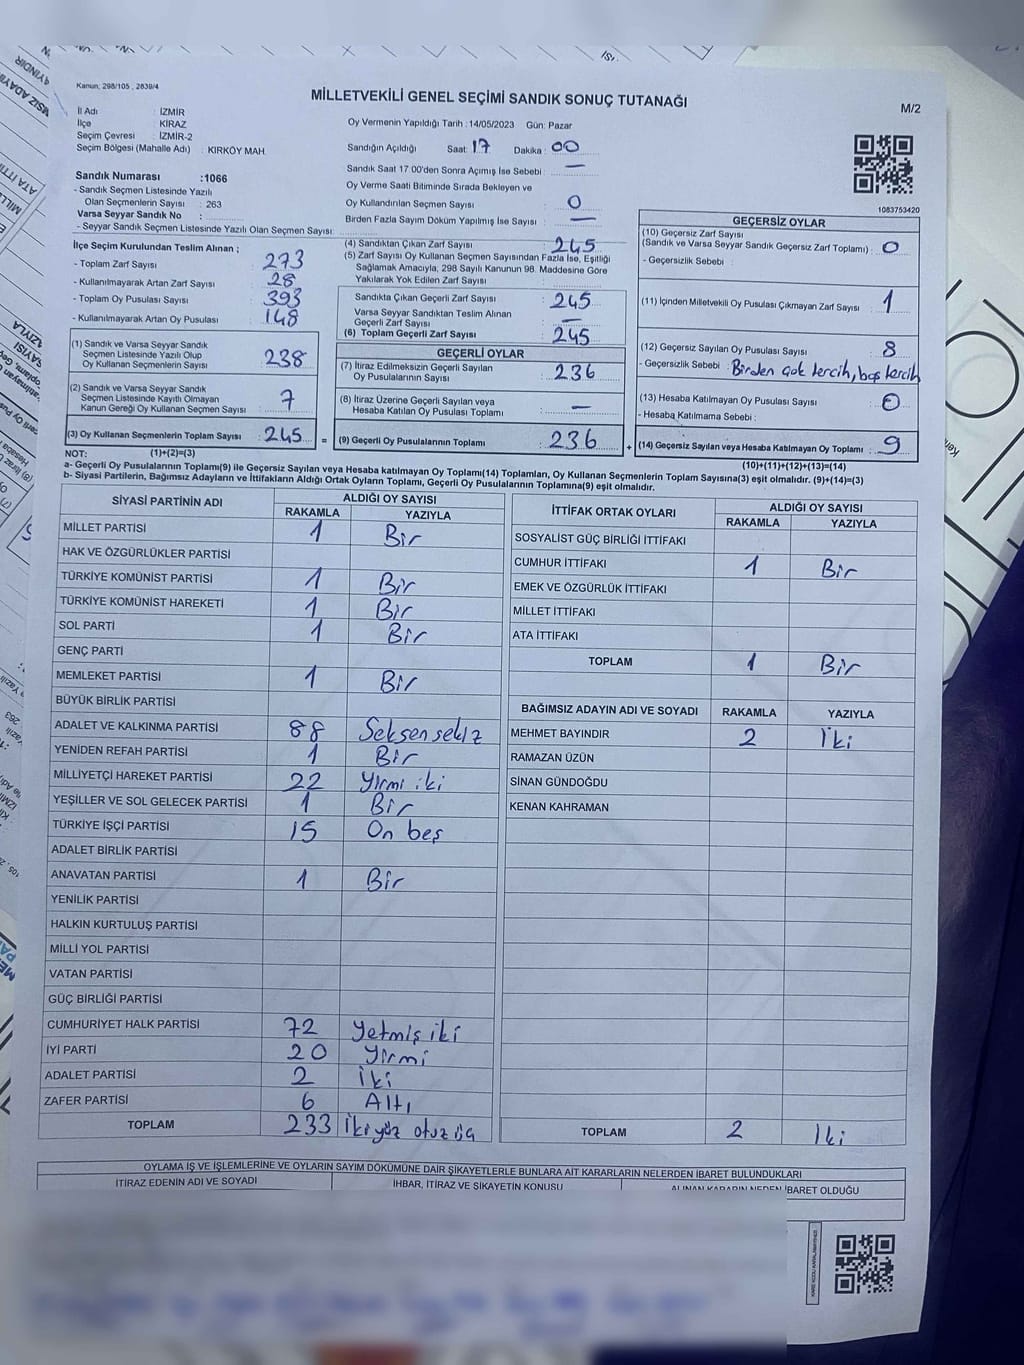 Kanun; 298/105 , 2839/4
MİLLETVEKİLİ GENEL SEÇİMİ SANDIK SONUÇ TUTANAĞI
M/2
İl Adı : İZMİR
İlçe : KİRAZ
Seçim Çevresi : İZMİR-2
Seçim Bölgesi (Mahalle Adı) : KIRKÖY MAH.
Oy Vermenin Yapıldığı Tarih : 14/05/2023 Gün: Pazar
Sandığın Açıldığı Saat: 17 Dakika : 00
Sandık Saat 17 00'den Sonra Açımış İse Sebebi : —
Oy Verme Saati Bitiminde Sırada Bekleyen ve
Oy Kullandırılan Seçmen Sayısı : 0
Birden Fazla Sayım Döküm Yapılmış İse Sayısı : —
Sandık Numarası :1066
- Sandık Seçmen Listesinde Yazılı
Olan Seçmenlerin Sayısı : 263
Varsa Seyyar Sandık No :
- Seyyar Sandık Seçmen Listesinde Yazılı Olan Seçmen Sayısı
1083753420
İlçe Seçim Kurulundan Teslim Alınan ;
- Toplam Zarf Sayısı 273
- Kullanılmayarak Artan Zarf Sayısı 28
- Toplam Oy Pusulası Sayısı 393
- Kullanılmayarak Artan Oy Pusulası 148
(1) Sandık ve Varsa Seyyar Sandık
Seçmen Listesinde Yazılı Olup
Oy Kullanan Seçmenlerin Sayısı 238
(2) Sandık ve Varsa Seyyar Sandık
Seçmen Listesinde Kayıtlı Olmayan
Kanun Gereği Oy Kullanan Seçmen Sayısı 7
(3) Oy Kullanan Seçmenlerin Toplam Sayısı 245
(4) Sandıktan Çıkan Zarf Sayısı : 245
(5) Zarf Sayısı Oy Kullanan Seçmen Sayısından Fazla İse, Eşitliği
Sağlamak Amacıyla, 298 Sayılı Kanunun 98. Maddesine Göre
Yakılarak Yok Edilen Zarf Sayısı
Sandıkta Çıkan Geçerli Zarf Sayısı : 245
Varsa Seyyar Sandıktan Teslim Alınan
Geçerli Zarf Sayısı : —
(6) Toplam Geçerli Zarf Sayısı : 245
GEÇERLİ OYLAR
(7) İtiraz Edilmeksizin Geçerli Sayılan
Oy Pusulalarının Sayısı : 236
(8) İtiraz Üzerine Geçerli Sayılan veya
Hesaba Katılan Oy Pusulası Toplamı : —
= (9) Geçerli Oy Pusulalarının Toplamı : 236 +
GEÇERSİZ OYLAR
(10) Geçersiz Zarf Sayısı
(Sandık ve Varsa Seyyar Sandık Geçersiz Zarf Toplamı) : 0
- Geçersizlik Sebebi :
(11) İçinden Milletvekili Oy Pusulası Çıkmayan Zarf Sayısı : 1
(12) Geçersiz Sayılan Oy Pusulası Sayısı : 8
- Geçersizlik Sebebi : Birden çok tercih, boş tercih
(13) Hesaba Katılmayan Oy Pusulası Sayısı : 0
- Hesaba Katılmama Sebebi :
(14) Geçersiz Sayılan veya Hesaba Katılmayan Oy Toplamı : 9
NOT: (1)+(2)=(3)
(10)+(11)+(12)+(13)=(14)
a- Geçerli Oy Pusulalarının Toplamı(9) ile Geçersiz Sayılan veya Hesaba katılmayan Oy Toplamı(14) Toplamları, Oy Kullanan Seçmenlerin Toplam Sayısına(3) eşit olmalıdır. (9)+(14)=(3)
b- Siyasi Partilerin, Bağımsız Adayların ve İttifakların Aldığı Ortak Oyların Toplamı, Geçerli Oy Pusulalarının Toplamına(9) eşit olmalıdır.
SİYASİ PARTİNİN ADI ALDIĞI OY SAYISI
RAKAMLA YAZIYLA
MİLLET PARTİSİ 1 Bir
HAK VE ÖZGÜRLÜKLER PARTİSİ
TÜRKİYE KOMÜNİST PARTİSİ 1 Bir
TÜRKİYE KOMÜNİST HAREKETİ 1 Bir
SOL PARTİ 1 Bir
GENÇ PARTİ
MEMLEKET PARTİSİ 1 Bir
BÜYÜK BİRLİK PARTİSİ
ADALET VE KALKINMA PARTİSİ 88 Seksen sekiz
YENİDEN REFAH PARTİSİ 1 Bir
MİLLİYETÇİ HAREKET PARTİSİ 22 Yirmi iki
YEŞİLLER VE SOL GELECEK PARTİSİ 1 Bir
TÜRKİYE İŞÇİ PARTİSİ 15 On beş
ADALET BİRLİK PARTİSİ
ANAVATAN PARTİSİ 1 Bir
YENİLİK PARTİSİ
HALKIN KURTULUŞ PARTİSİ
MİLLİ YOL PARTİSİ
VATAN PARTİSİ
GÜÇ BİRLİĞİ PARTİSİ
CUMHURİYET HALK PARTİSİ 72 Yetmiş iki
İYİ PARTİ 20 Yirmi
ADALET PARTİSİ 2 İki
ZAFER PARTİSİ 6 Altı
TOPLAM 233 İki yüz otuz üç
İTTİFAK ORTAK OYLARI ALDIĞI OY SAYISI
RAKAMLA YAZIYLA
SOSYALİST GÜÇ BİRLİĞİ İTTİFAKI
CUMHUR İTTİFAKI 1 Bir
EMEK VE ÖZGÜRLÜK İTTİFAKI
MİLLET İTTİFAKI
ATA İTTİFAKI
TOPLAM 1 Bir
BAĞIMSIZ ADAYIN ADI VE SOYADI RAKAMLA YAZIYLA
MEHMET BAYINDIR 2 İki
RAMAZAN ÜZÜN
SİNAN GÜNDOĞDU
KENAN KAHRAMAN
TOPLAM 2 İki
OYLAMA İŞ VE İŞLEMLERİNE VE OYLARIN SAYIM DÖKÜMÜNE DAİR ŞİKAYETLERLE BUNLARA AİT KARARLARIN NELERDEN İBARET BULUNDUKLARI
İTİRAZ EDENİN ADI VE SOYADI İHBAR, İTİRAZ VE ŞİKAYETİN KONUSU ALINAN KARARIN NEDEN İBARET OLDUĞU